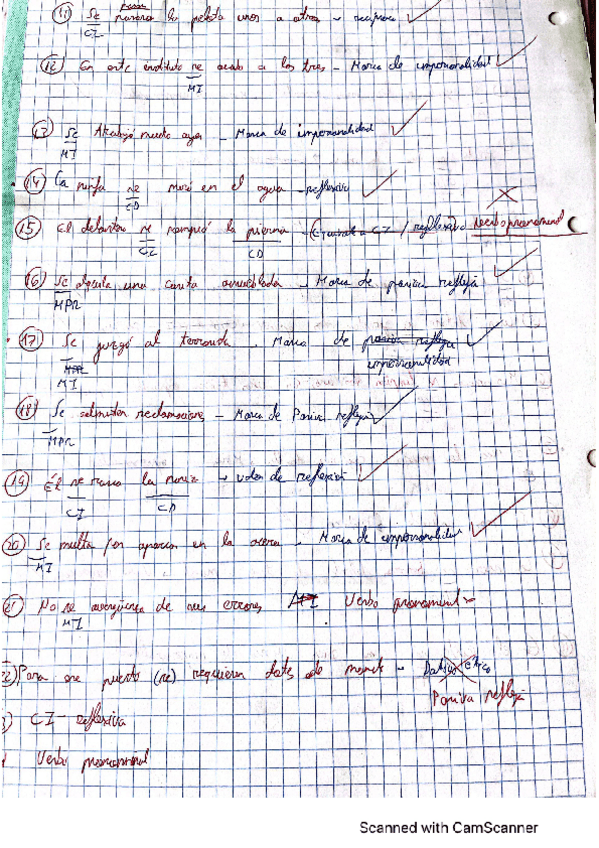 pasan
11 Se pasaron la pelota unos a otros - recíproca
CI
12 En este instituto se acosó a los tres - Marca de impersonalidad
MI
13 Se trabajó mucho ayer - Marca de impersonalidad
MI
14 La ninfa se miró en el agua - reflexivo
CD
15 El delantero se rompió la pierna - CI / reflexivo verbo pronominal
CD
16 Se alquila una casita amueblada - Marca de pasiva refleja
MPR
17 Se juzgó al terrorista. Marca de pasiva refleja
MI impersonalidad
18 Se admiten reclamaciones - Marca de Pasiva refleja
MPR
19 Él se rasca la nariz - valor de reflexivo
CI CD
20 Se multa por aparcar en la acera - Marca de impersonalidad
MI
21 No se avergüenza de sus errores MI Verbo pronominal
MI
22) Para ese puesto (se) requieren dotes de mando - Dativo ético
Pasiva refleja
) CI - reflexiva
Verbo pronominal
Scanned with CamScanner